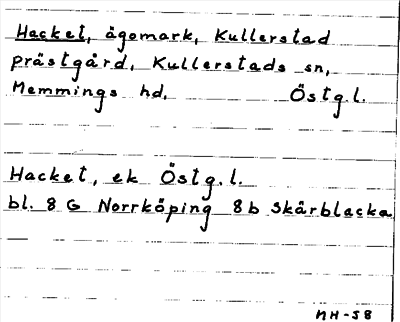 Hacket, ägomark, Kullerstad
prästgård, Kullerstads sn,
Memmings hd, Östg.l.
Hacket, ek Östg.l.
bl. 8 G Norrköping 8b Skärblacka
NH-58